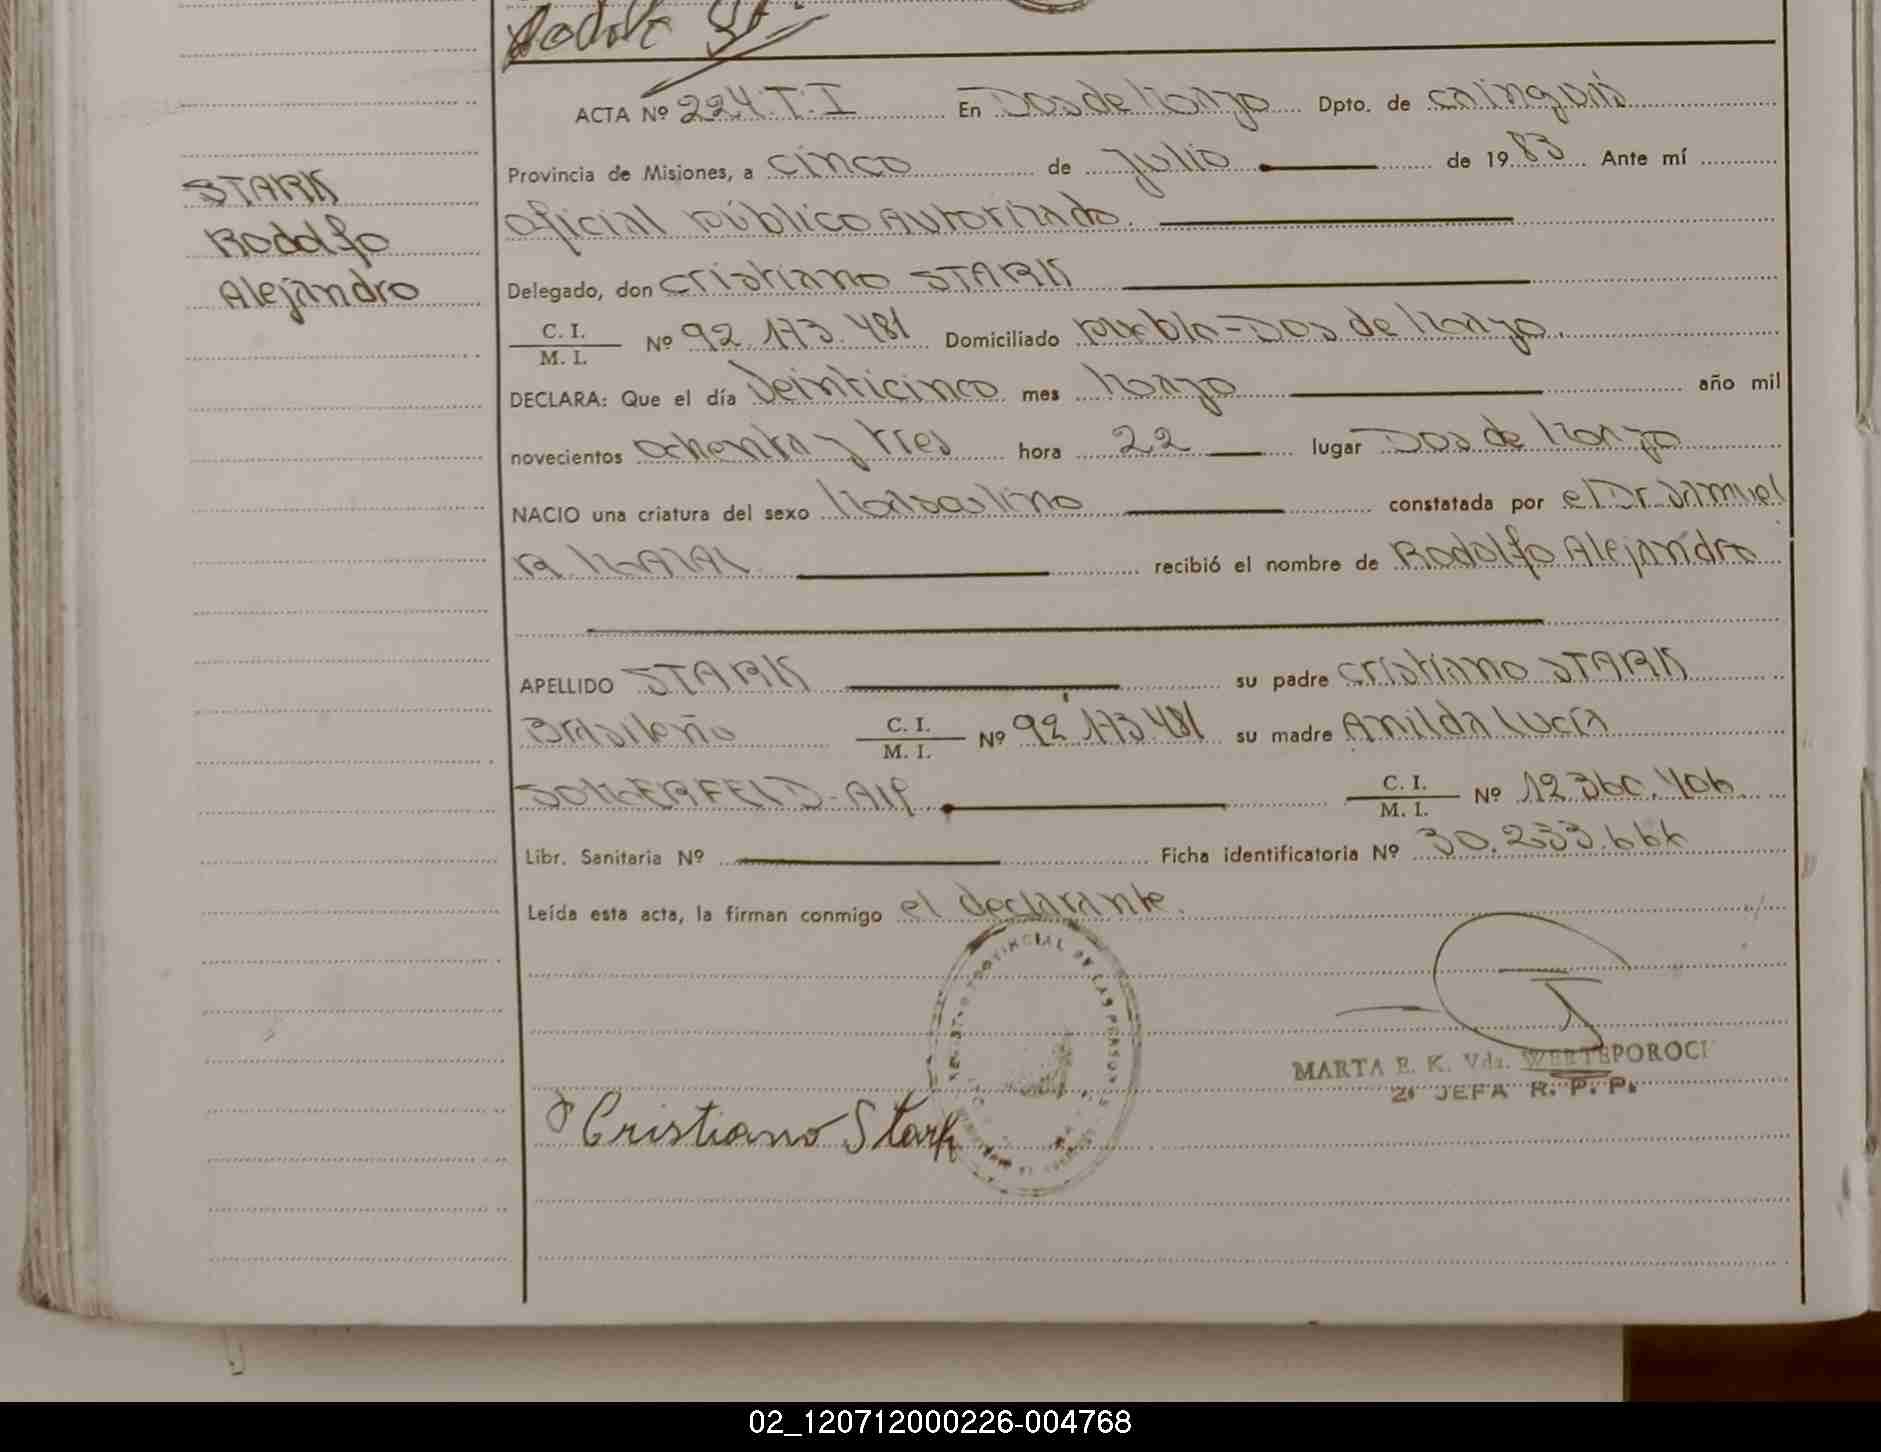 ACTA Nº 224. T. I En Dos de Mayo Dpto. de Cainguás
Provincia de Misiones, a cinco de julio de 1983 Ante mí
STARK
oficial público Autorizado.
Rodolfo
Delegado, don Cristiano STARK
Alejandro
C. I.
M. I. Nº 92.173.481 Domiciliado pueblo-Dos de Mayo.
DECLARA: Que el día Veinticinco mes Mayo año mil
novecientos ochenta y tres hora 22 lugar Dos de Mayo
NACIO una criatura del sexo Masculino constatada por el Dr. Samuel
recibió el nombre de Rodolfo Alejandro
APELLIDO STARK su padre Cristiano STARK
Brasileño C. I.
M. I. Nº 92.173.481 su madre Anilda Lucía
SOMMERFELD-Arg. C. I.
M. I. Nº 12.360.406
Libr. Sanitaria Nº Ficha identificatoria Nº 30.233.666
Leída esta acta, la firman conmigo el declarante.
MARTA E. K. Vda. WERTEPOROCI
2ª JEFA R. P. P.
Cristiano Stark
02_120712000226-004768